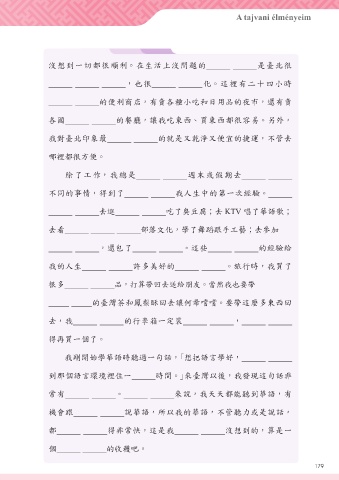 A tajvani élményeim
沒想到一切都很順利。在生活上沒問題的______ ______是臺北很
______ ______ ______，也很______ ______化。這裡有二十四小時
______ ______的便利商店，有賣各種小吃和日用品的夜市，還有賣
各國______ ______的餐廳，讓我吃東西、買東西都很容易。另外，
我對臺北印象最______ ______的就是又乾淨又便宜的捷運，不管去
哪裡都很方便。
除了工作，我總是______ ______週末或假期去______ ______
不同的事情，得到了______ ______我人生中的第一次經驗。______
______ ______去逛______ ______吃了臭豆腐；去 KTV 唱了華語歌；
去看______ ______ ______部落文化，學了舞蹈跟手工藝；去參加
______ ______，還包了______ ______。這些______ ______的經驗給
我的人生______ ______許多美好的______ ______。旅行時，我買了
很多______ ______品，打算帶回去送給朋友。當然我也要帶
______ ______的臺灣茶和鳳梨酥回去讓何希嚐嚐。要帶這麼多東西回
去，我______ ______的行李箱一定裝______ ______，______ ______
得再買一個了。
我剛開始學華語時聽過一句話，「想把語言學好，______ ______
到那個語言環境裡住一______時間。」來臺灣以後，我發現這句話非
常有______ ______。______ ______來說，我天天都能聽到華語，有
機會跟______ ______說華語，所以我的華語，不管聽力或是說話，
都______ ______得非常快，這是我______ ______沒想到的，算是一
個______ ______的收穫吧。
179